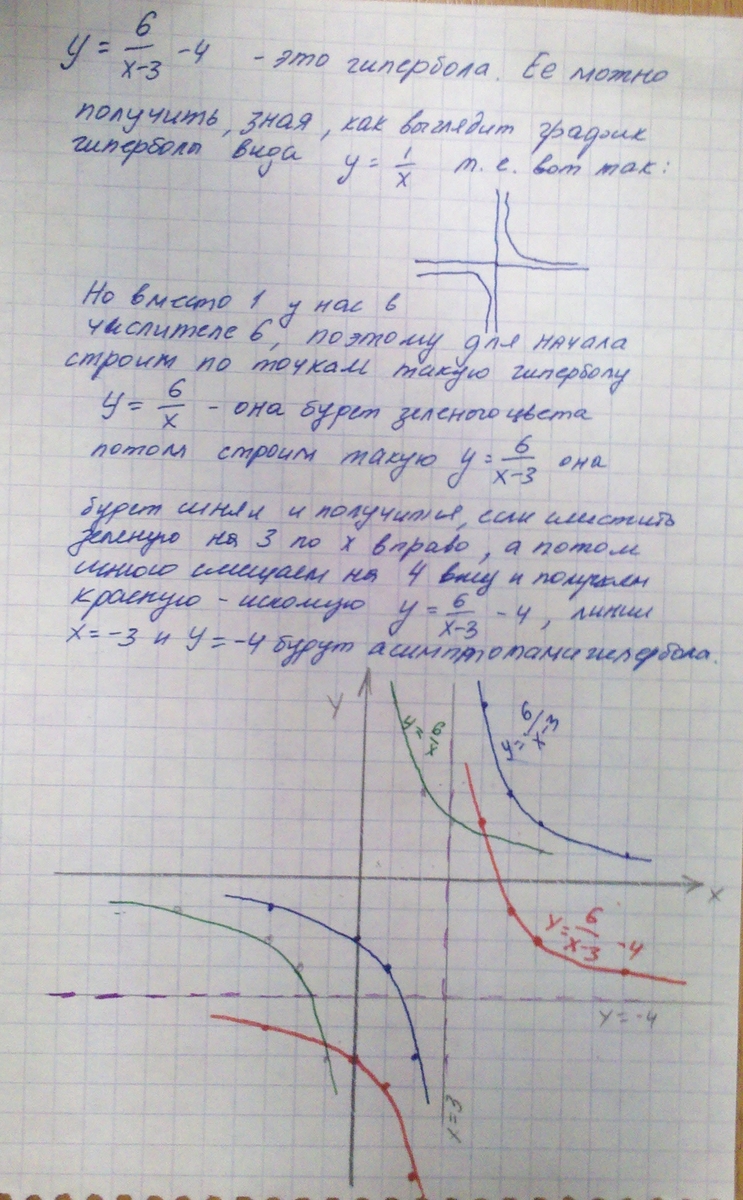 y = 6/(x-3) -4 - это гипербола. Ее можно
получить, зная, как выглядит график
гиперболы вида y = 1/x т.е. вот так:
Но вместо 1 у нас в
числителе 6, поэтому для начала
строим по точкам такую гиперболу
y = 6/x - она будет зеленого цвета
потом строим такую y = 6/(x-3) она
будет синяя и получится, если сместить
зеленую на 3 по x вправо, а потом
синюю смещаем на 4 вниз и получаем
красную - искомую y = 6/(x-3) -4, линии
x = -3 и y = -4 будут асимптотами гипербола.
y
y = 6/x
y = 6/x-3
x
y = 6/(x-3) -4
y = -4
x = 3